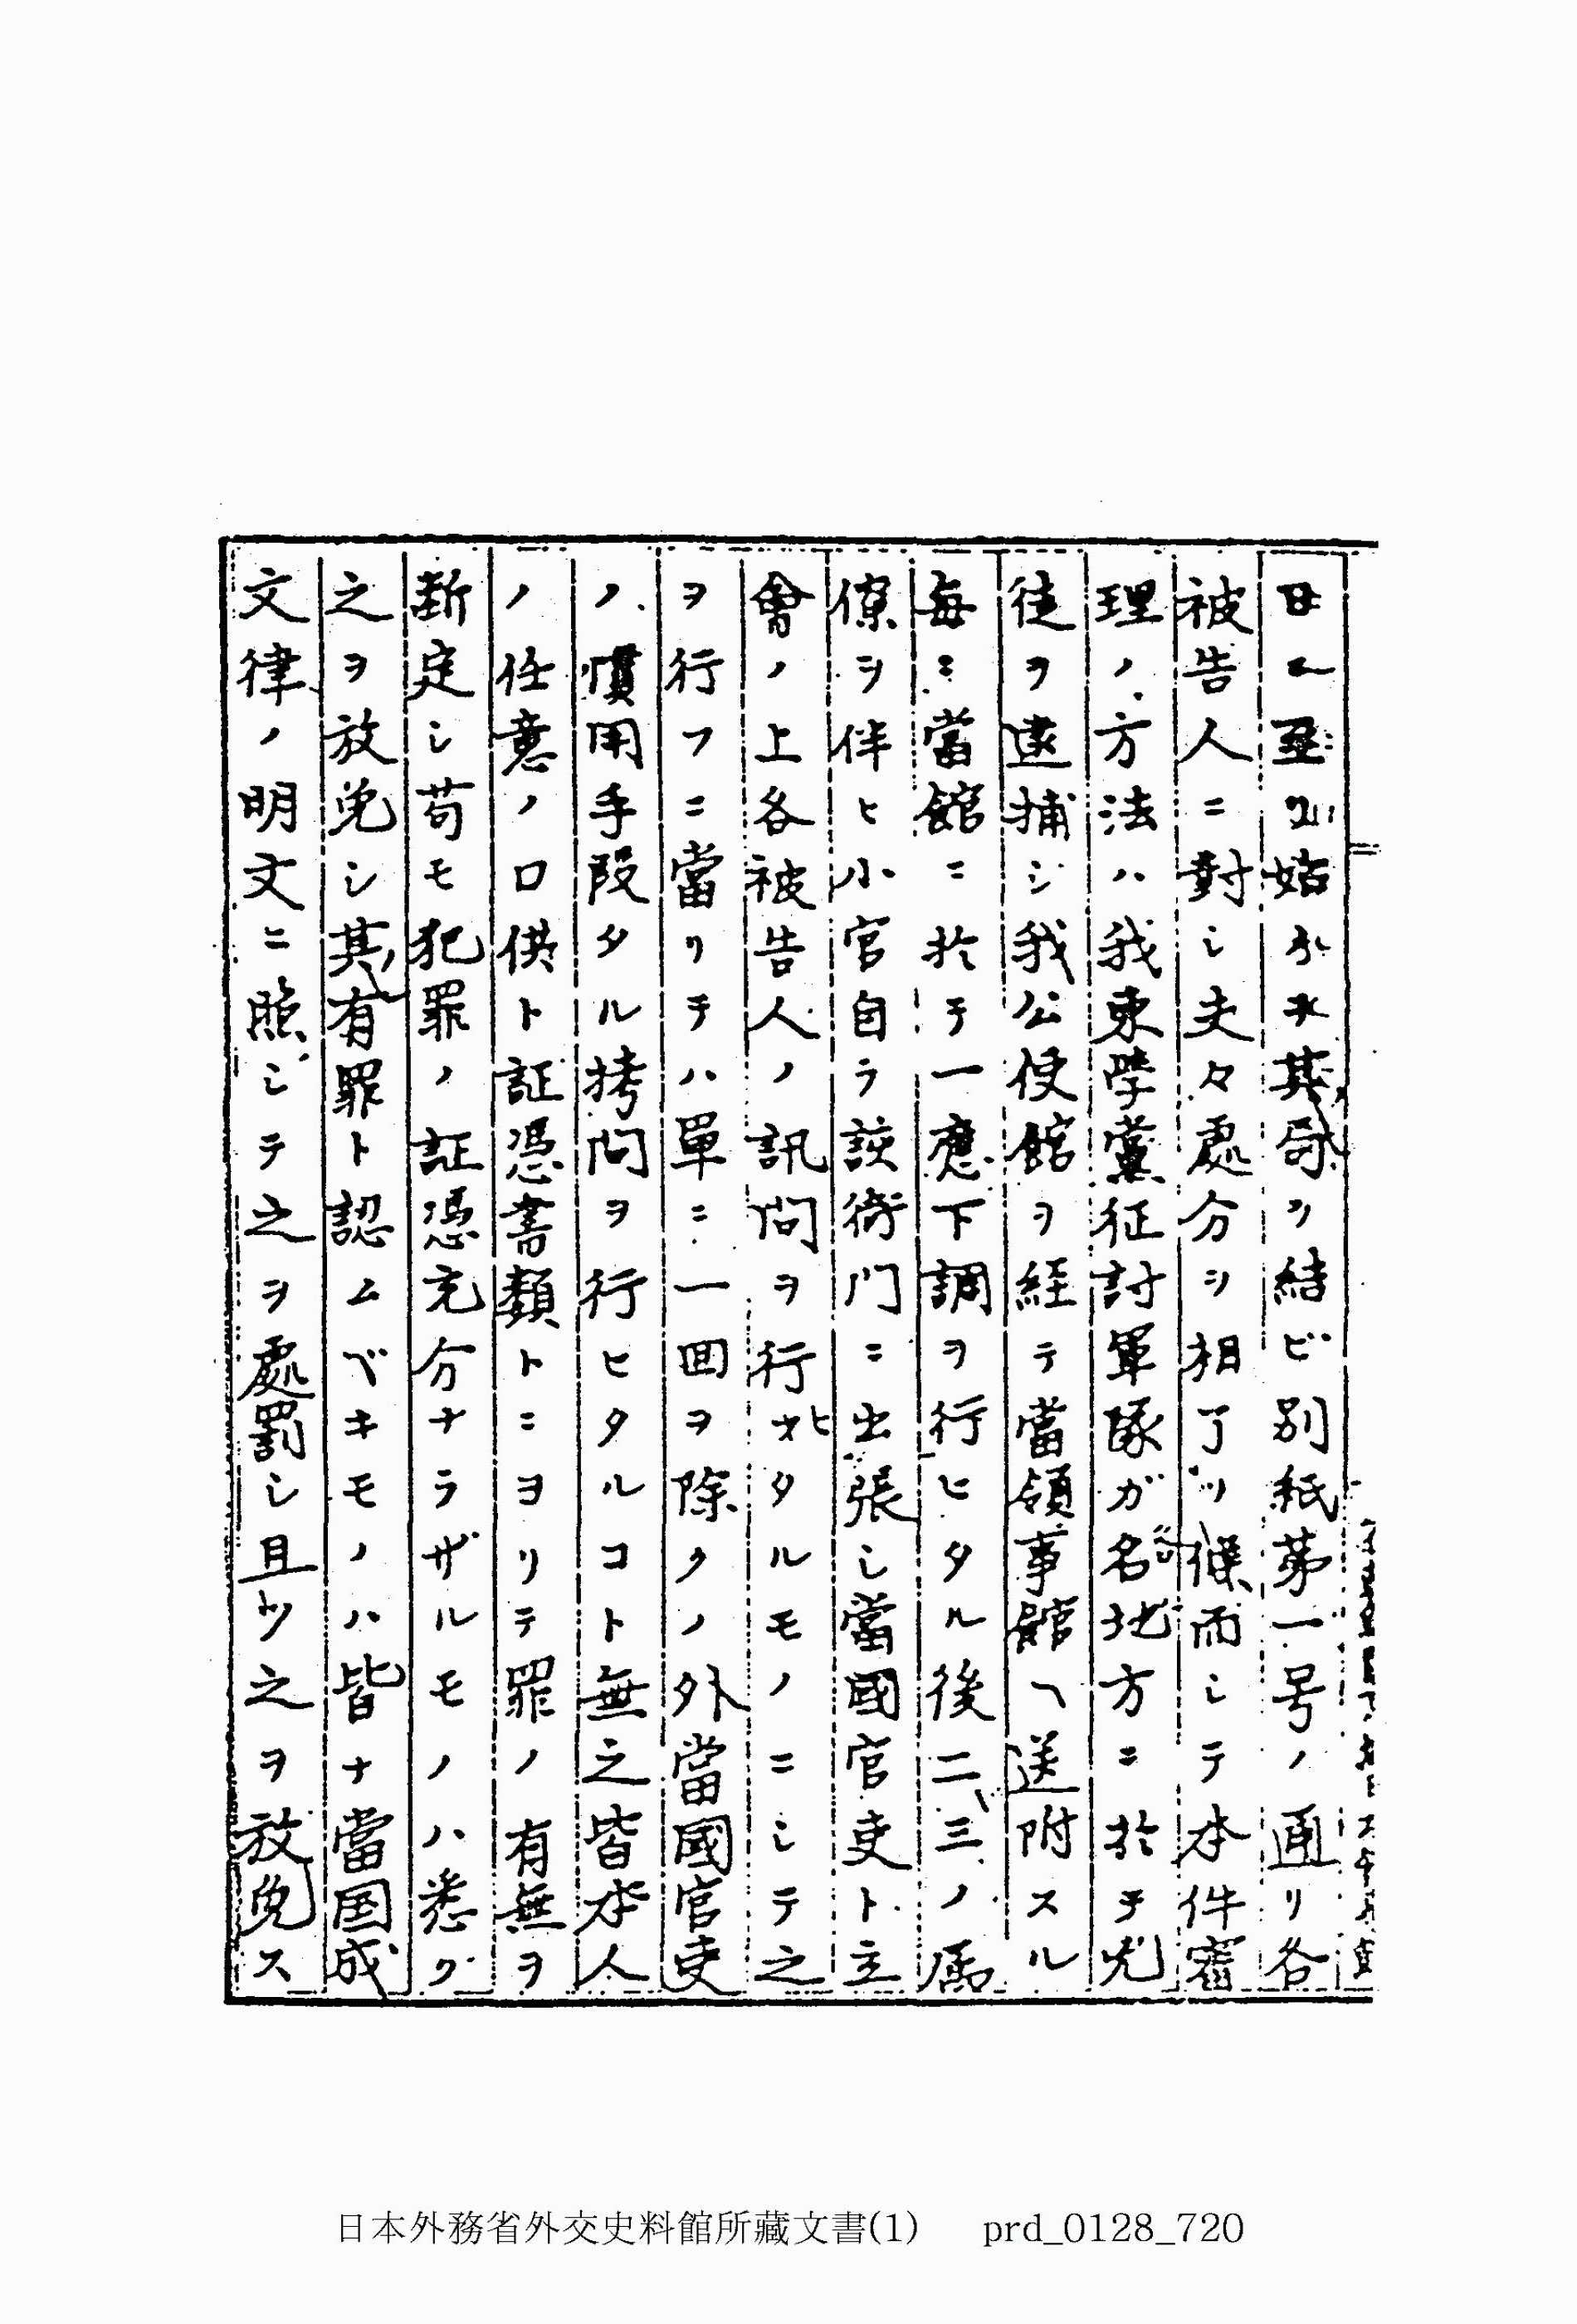 日ニ至リ姑ルホ其局ヲ結ビ別紙第一号ノ通リ各
被告人ニ對シ夫々處分ヲ相了ッ候而シテ本件審
理ノ方法ハ我東學黨征討軍隊ガ各地方ニ於テ兇
徒ヲ逮捕シ我公使館ヲ経テ當領事館ヘ送附スル
毎ニ當館ニ於テ一應下調ヲ行ヒタル後二、三ノ属
僚ヲ伴ヒ小官自ラ該衙門ニ出張シ當國官吏ト立
會ノ上各被告人ノ訊問ヲ行ヒタルモノニシテ之
ヲ行フニ當リテハ單ニ一回ヲ除クノ外當國官吏
ノ慣用手段タル拷問ヲ行ヒタルコト無之皆本人
ノ任意ノ口供ト証憑書類トニヨリテ罪ノ有無ヲ
断定シ苟モ犯罪ノ証憑充分ナラザルモノハ悉ク
之ヲ放免シ其有罪ト認ムベキモノハ皆ナ當国成
文律ノ明文ニ照シテ之ヲ處罰シ且ツ之ヲ放免ス
日本外務省外交史料館所藏文書(1) prd_0128_720